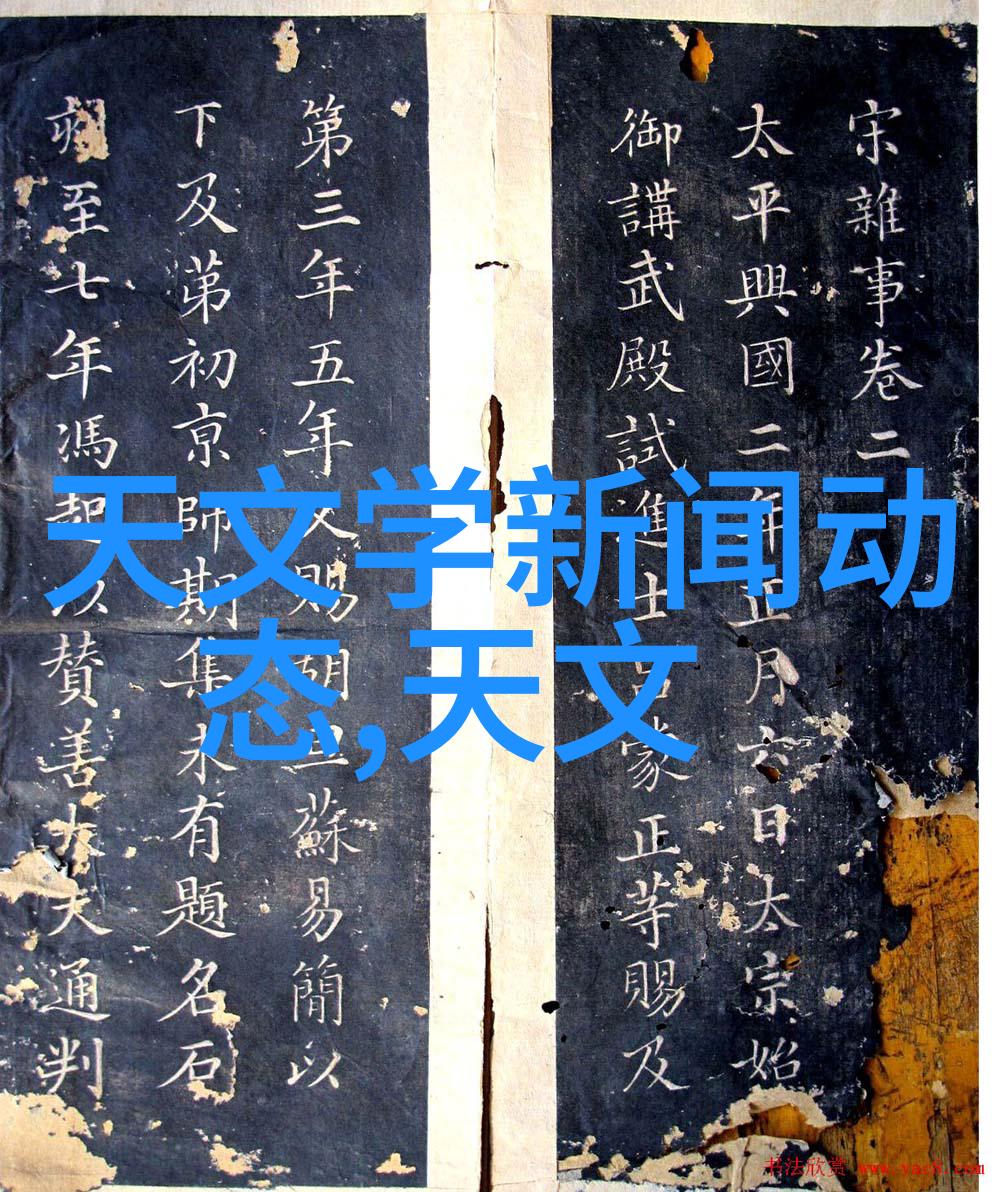 宋雜事卷二
太平興國二年正月六日太宗始
御講武殿試進士呂蒙正等賜及
第三年五年又賜胡旦蘇易簡以
下及第初京師期集未有題名石
刻至七年馮起以贊善大夫通判
天文学新闻动
态,天文
书法欣赏 www.yac8.com